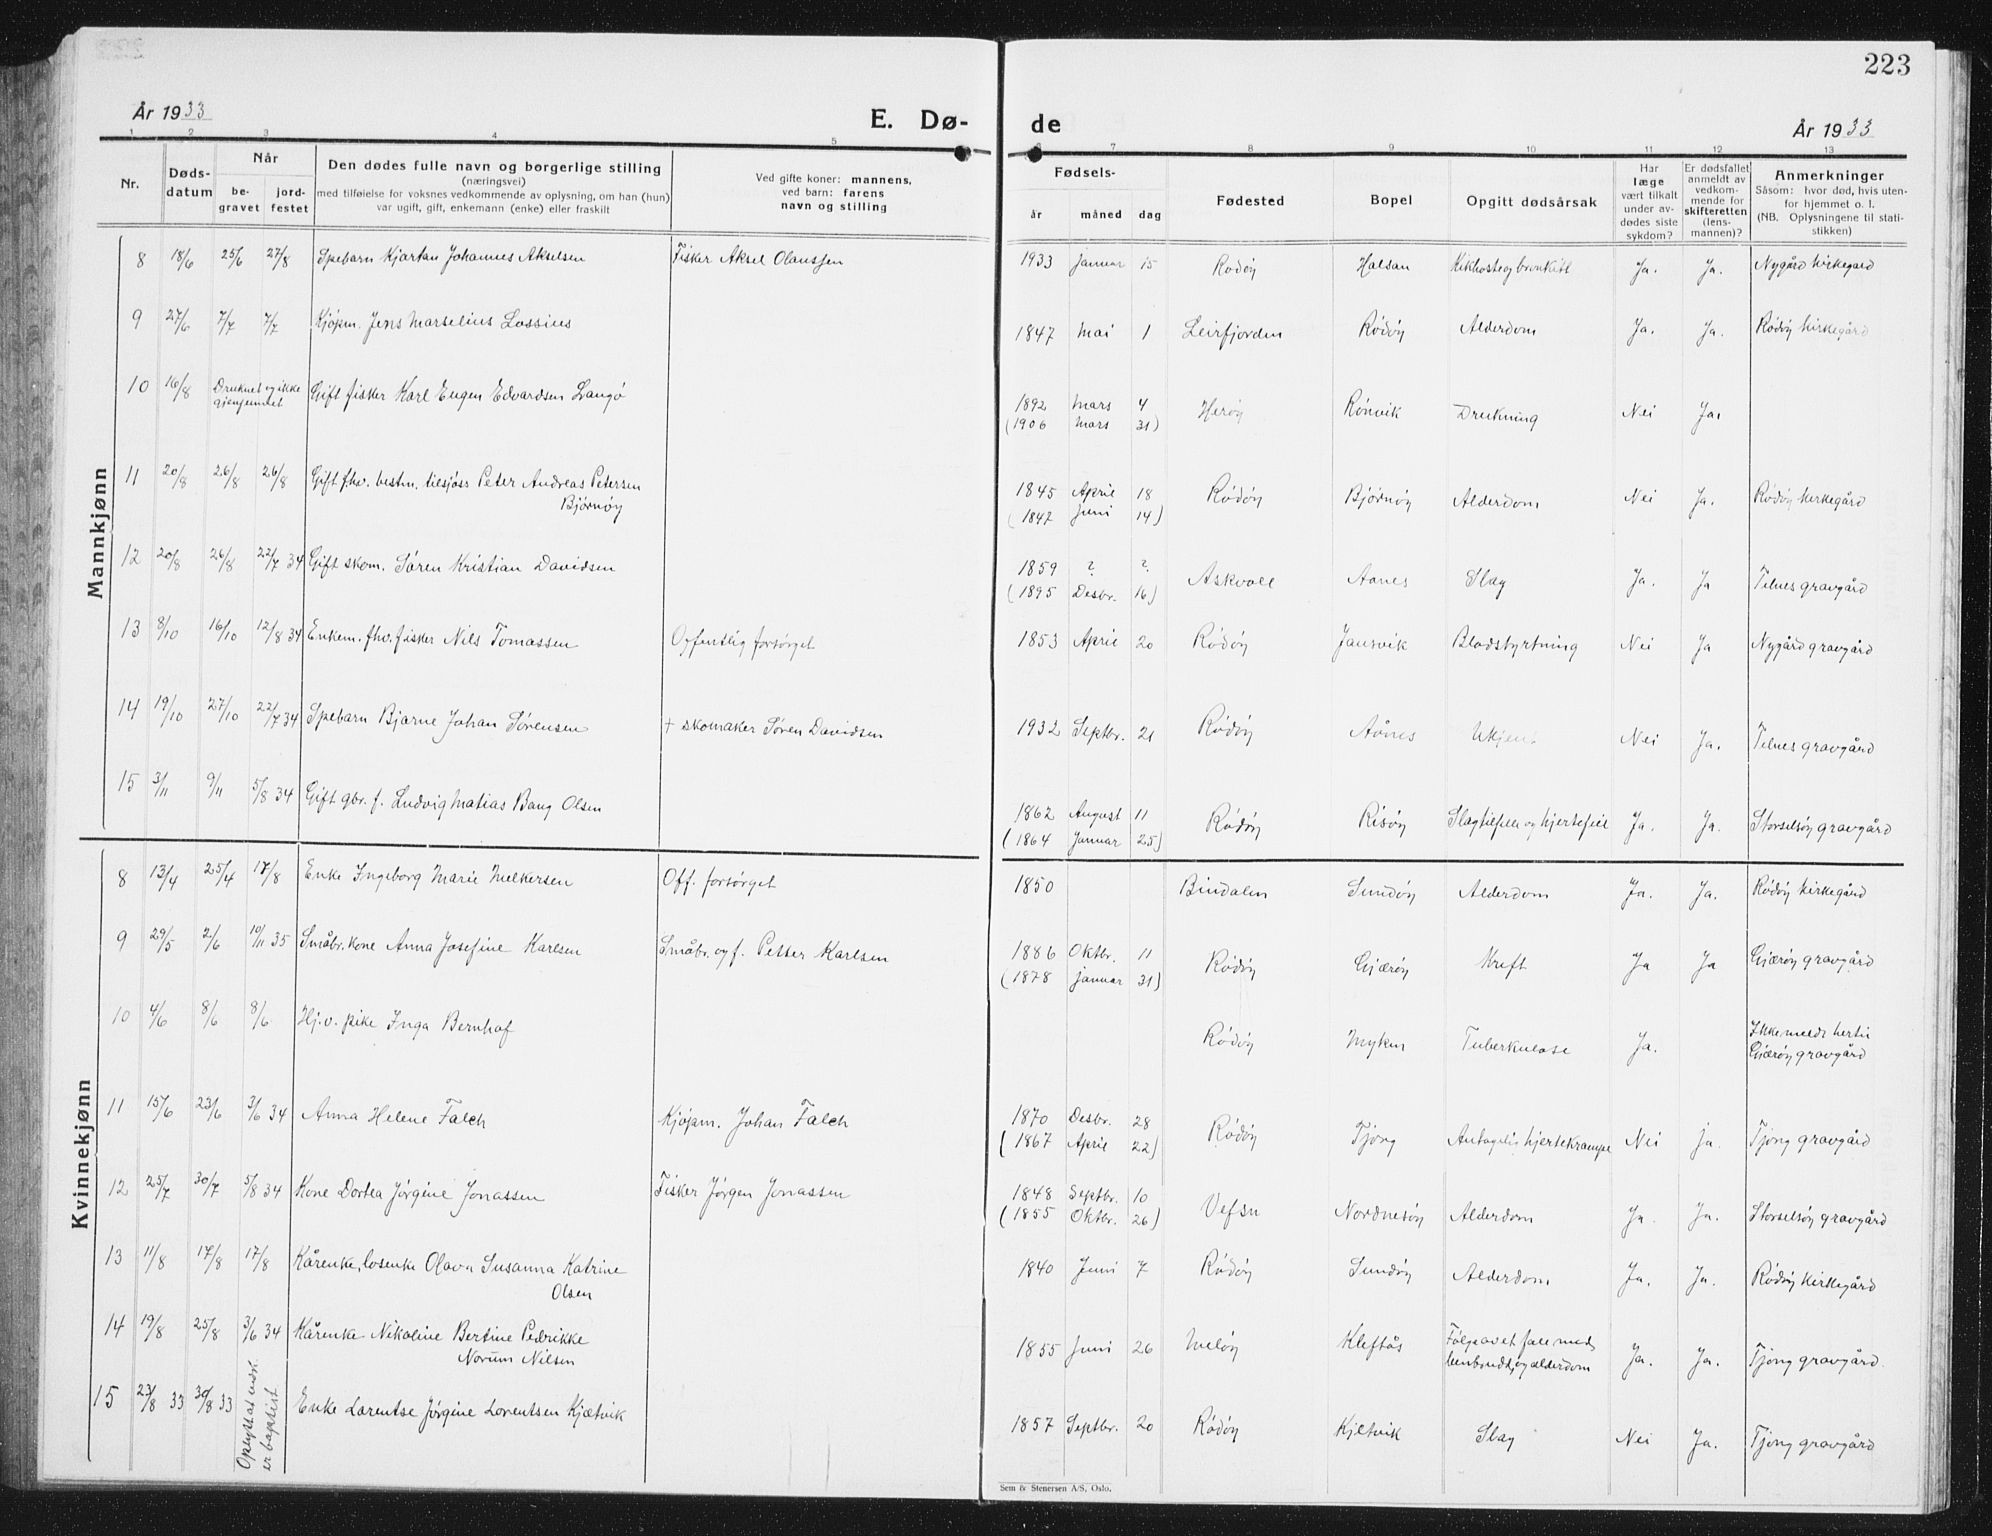 223
År 1933
E. Dø-
de
År 1933
1 2 3 4 5 6 7 8 9 10 11 12 13
Nr.
Døds-
datum
Når
be-
gravet
jord-
festet
Den dødes fulle navn og borgerlige stilling
(næringsvei)
med tilføielse for voksnes vedkommende av oplysning, om han (hun)
var ugift, gift, enkemann (enke) eller fraskilt
Ved gifte koner: mannens,
ved barn: farens
navn og stilling
Fødsels-
år
måned
dag
Fødested
Bopel
Opgitt dødsårsak
Har
læge
vært tilkalt
under av-
dødes siste
sykdom?
Er dødsfallet
anmeldt av
vedkom-
mende for
skifteretten
(lens-
mannen)?
Anmerkninger
Såsom: hvor død, hvis uten-
for hjemmet o. l.
(NB. Oplysningene til stati-
stikken)
Mannkjønn
8 18/6 25/6 27/8 Spebarn Kjartan Johannes Akselsen Fisker Aksel Olaussen 1933 Januar 15 Rødøy Halsan Kikhoste og bronkitt Ja. Ja. Nygård kirkegård
9 27/6 7/7 7/7 Kjøpm. Jens Marselius Lossius 1847 Mai 1 Leirfjorden Rødøy Alderdom Ja. Ja. Rødøy kirkegård
10 16/8 Druknet og ikke
gjenfunnet Gift fisker Karl Eugen Edvardsen Langø 1892 Mars 4 Herøy Rønvik Drukning Nei Ja.
(1906 Mars 31)
11 20/8 26/8 26/8 Gift fhv. bestm. tilsjøss Peter Andreas Petersen
Bjørnøy 1845 April 18 Rødøy Bjørnøy Alderdom Nei Ja. Rødøy kirkegård
(1847 Juni 14)
12 20/8 26/8 22/7 34 Gift skom. Søren Kristian Davidsen 1859 ? ? Askvoll Aanes Slag Ja. Ja Telnes gravgård
(1895 Desbr. 16)
13 8/10 16/10 12/8 34 Enkem. fhv. fisker Nils Tomassen Offentlig forsørget 1853 April 20 Rødøy Jansvik Blodstyrtning Nei Ja Nygård gravgård
14 19/10 27/10 22/7 34 Spebarn Bjarne Johan Sørensen + skomaker Søren Davidsen 1932 Septbr. 21 Rødøy Aånes Ukjent Nei Ja. Telnes gravgård
15 3/11 9/11 5/8 34 Gift gbr. f. Ludvig Matias Bang Olsen 1862 August 11 Rødøy Risøy Slagtilfelle og hjertefeil Ja. Ja. Storselsøy gravgård
(1864 Januar 25)
Kvinnekjønn
8 13/4 25/4 17/8 Enke Ingeborg Marie Melkersen Off. forsørget 1850 Bindalen Sundøy Alderdom Ja. Ja. Rødøy kirkegård
9 29/5 2/6 10/11 35 Småbr. kone Anna Josefine Karlsen Småbr. og f. Petter Karlsen 1886 Oktbr. 11 Rødøy Gjærøy Kreft Ja Ja Gjærøy gravgård
(1878 Januar 31)
10 4/6 8/6 8/6 Hj.v. pike Inga Bernhof Rødøy Myken Tuberkulose Ja. Ikke meldt hertil
Gjærøy gravgård
11 15/6 23/6 3/6 34 Anna Helene Falch Kjøpm. Johan Falch 1870 Desbr. 28 Rødøy Tjong Antagelig hjertekrampe Nei Ja. Tjong gravgård
(1867 April 22)
12 25/7 30/7 5/8 34 Kone Dortea Jørgine Jonassen Fisker Jørgen Jonassen 1848 Septbr. 10 Vefsn Nordnesøy Alderdom Ja. Ja. Storselsøy gravgård
(1855 Oktbr. 26)
13 11/8 17/8 17/8 Kårenke, losenke Olava Susanna Katrine
Olsen 1840 Juni 7 Rødøy Sundøy Alderdom Ja. Ja. Rødøy kirkegård
14 19/8 25/8 3/6 34 Kårenke Nikoline Bertine Pedrikke
Norum Nilsen 1855 Juni 26 Meløy Kleftås Følge avet fall med
benbrudd, og alderdom Ja. Ja. Tjong gravgård.
15 23/8 33 30/8 33 Oplyst at avdøde
er baptist Enke Lorentse Jørgine Lorentsen Kjætvik 1857 Septbr. 20 Rødøy Kjeltvik Slag Nei Ja. Tjong gravgård
Sem & Stenersen A/S, Oslo.